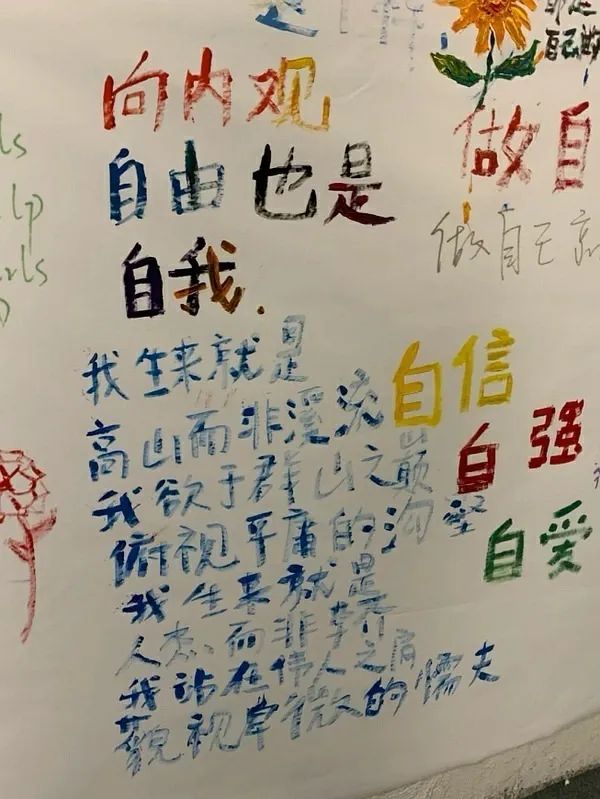 向内观
自由也是
自我.
我生来就是
高山而非溪流
我欲于群山之巅
俯视平庸的沟壑
我生来就是
人杰而非草芥
我站在伟人之肩
藐视卑微的懦夫
做自
做自己就
自信
自强
自爱
自己的